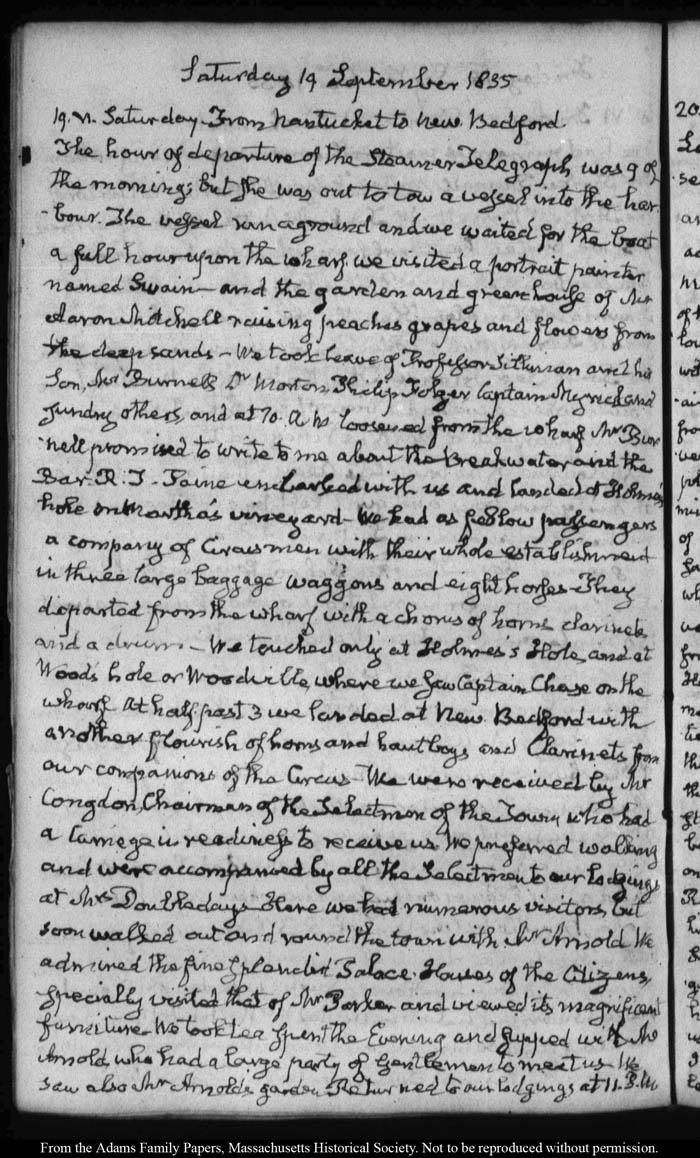 Saturday 19 September 1835
19. VI. Saturday. From Nantucket to New Bedford.
The hour of departure of the Steamer Telegraph was 9 of
the morning; but she was out to tow a vessel into the har-
-bour. The vessel run aground and we waited for the boat
a full hour upon the wharf we visited a portrait painter
named Swain — and the garden and greenhouse of Mr
Aaron Mitchell raising peaches grapes and flowers from
the deep sands — We took leave of Professor Silliman and his
Son, Mr Burnell Dr Morton Philip Folger Captain Myrick and
sundry others, and at 10. A.M. loosened from the wharf Mr Bur
-nell promised to write to me about the Breakwater and the
Bar. R. T. Paine embarked with us and landed at Holmes's
hole on Martha's vineyard — We had as fellow passengers
a company of Circus men with their whole establishment
in three large baggage waggons and eight horses — They
departed from the wharf with a chorus of horns clarinets
and a drum — We touched only at Holmes's Hole, and at
Wood's hole or Woodville, where we saw Captain Chase on the
wharf. At half past 3 we landed at New Bedford with
another flourish of horns and hautboys and Clarinets from
our companions of the Circus — We were received by Mr
Congdon, Chairman of the Selectmen of the Town, who had
a Carriage in readiness to receive us We preferred walking
and were accompanied by all the Selectmen to our lodgings
at Mrs Doubleday's — Here we had numerous visitors, but
soon walked out and round the town with Mr Arnold. We
admired the fine splendid Palace Houses of the Citizens,
specially visited that of Mr Parker and viewed its magnificent
furniture — We took tea spent the Evening and supped with Mr
Arnold, who had a large party of Gentlemen to meet us — We
saw also Mr Arnold's garden — Returned to our lodgings at 11. P.M.
20.
From the Adams Family Papers, Massachusetts Historical Society. Not to be reproduced without permission.